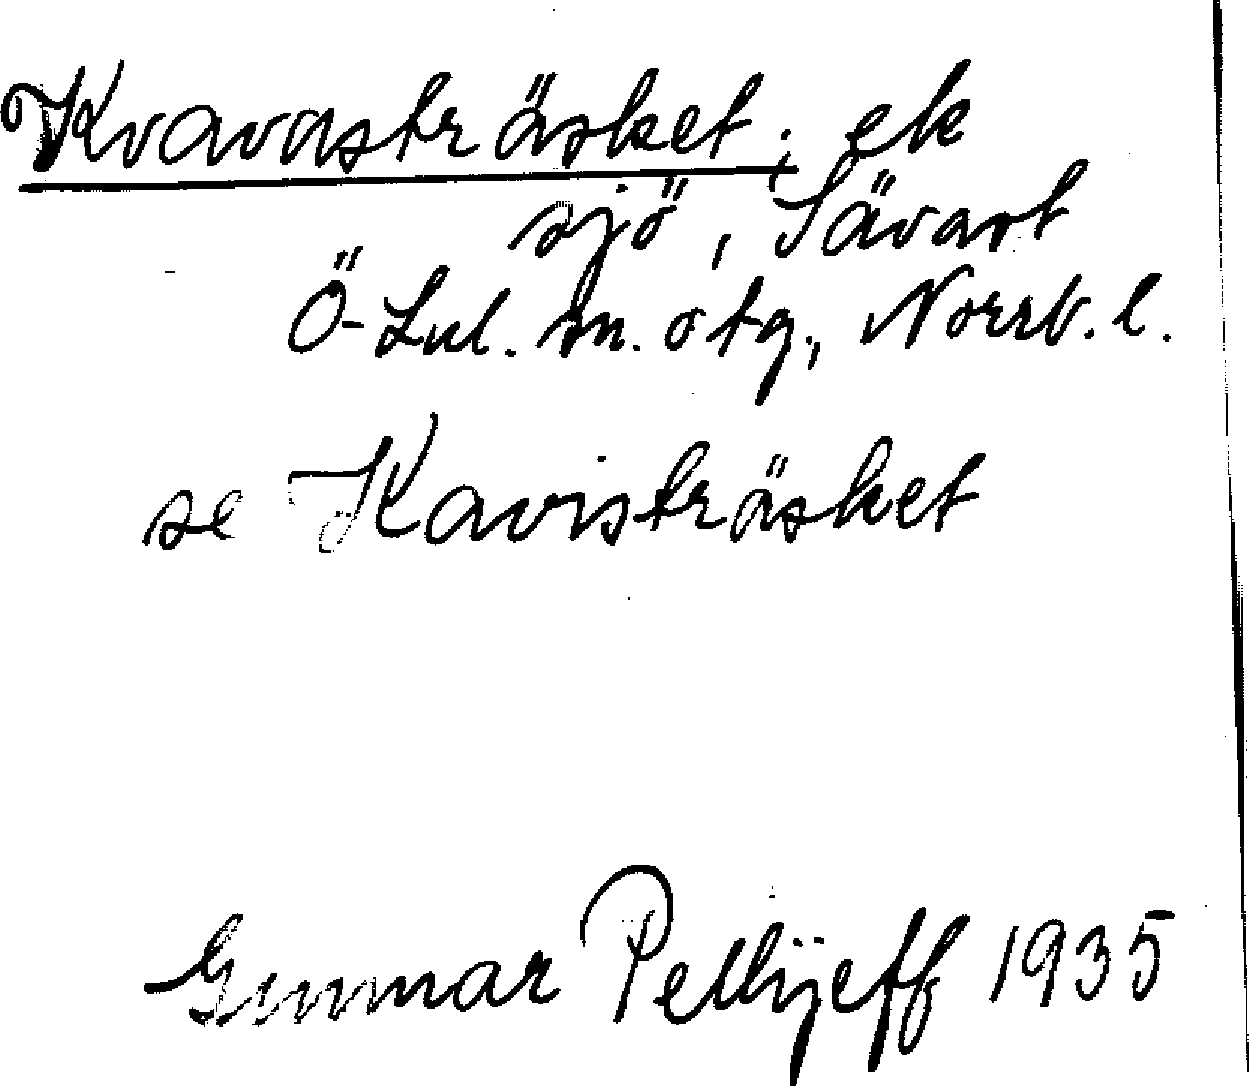 Kvavasträsket; ek
sjö, Sävast
Ö-Lul. sn. otg., Norrb. l.
se Kavisträsket
Gunnar Pellijeff 1935